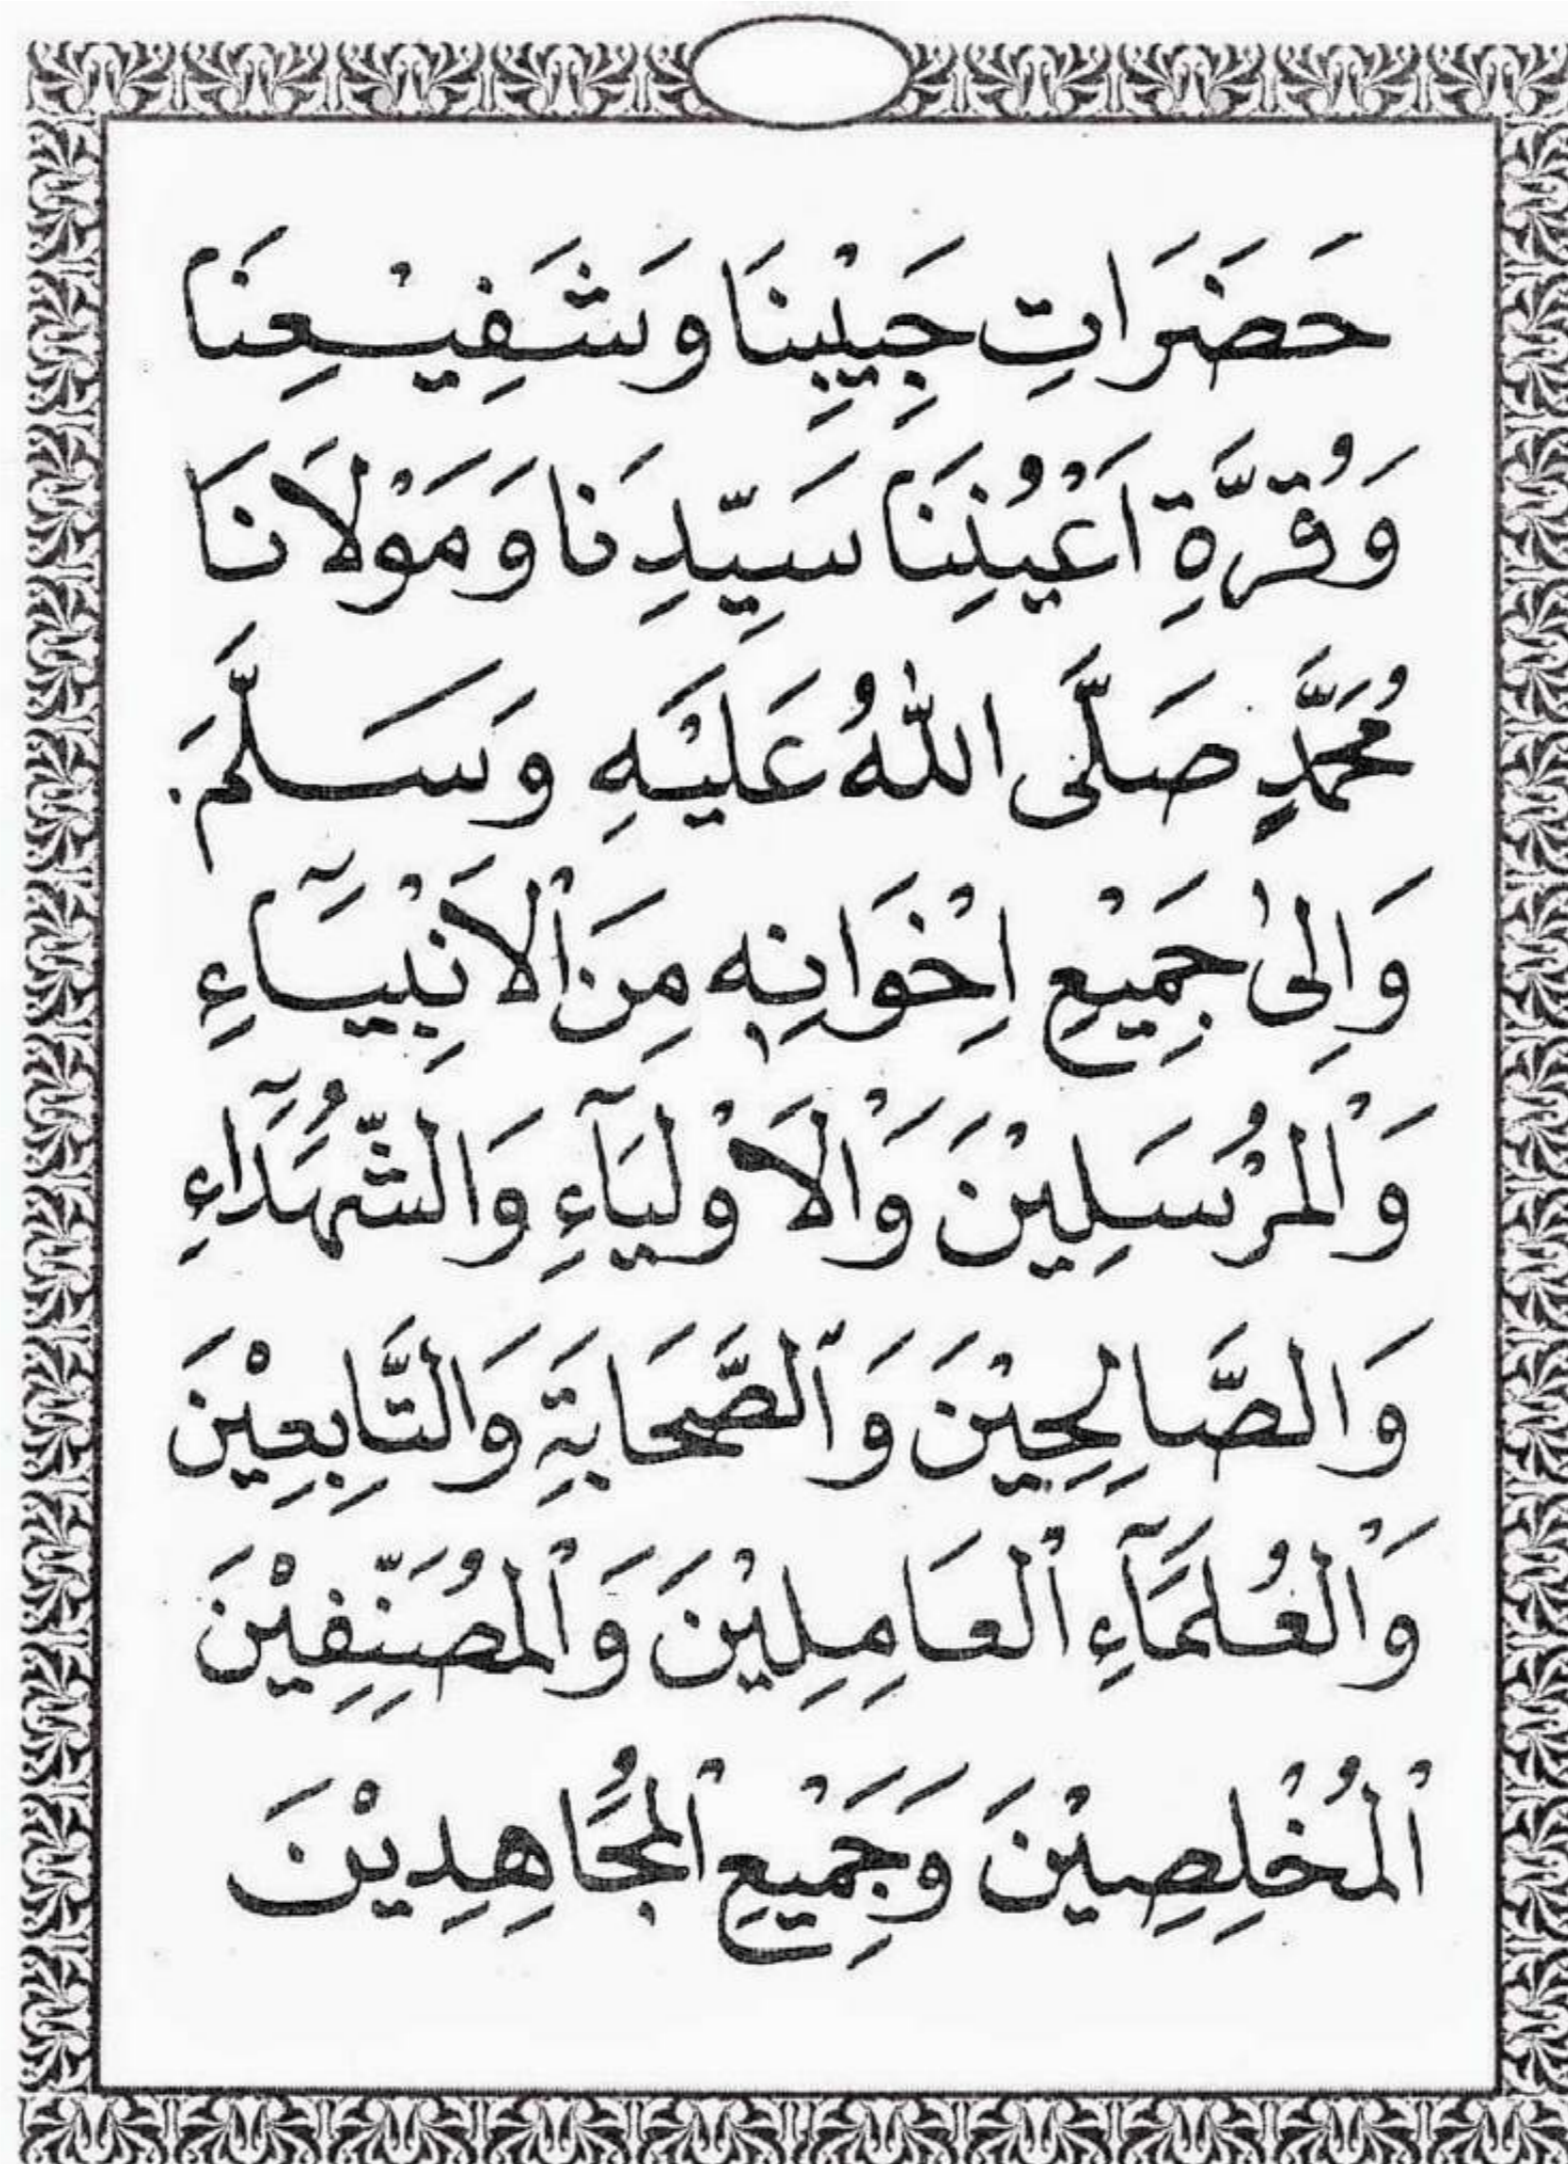 حَضَرَاتِ حَبِيْبِنَا وَشَفِيْعِنَا
وَقُرَّةِ اَعْيُنِنَا سَيِّدِنَا وَمَوْلَانَا
مُحَمَّدٍ صَلَّى اللّٰهُ عَلَيْهِ وَسَلَّمَ.
وَاِلىٰ جَمِيْعِ اِخْوَانِهٖ مِنَ ٱلْاَنْبِيَآءِ
وَالْمُرْسَلِيْنَ وَالْاَوْلِيَآءِ وَالشُّهَدَآءِ
وَالصَّالِحِيْنَ وَٱلصَّحَابَةِ وَالتَّابِعِيْنَ
وَالْعُلَمَآءِ ٱلْعَامِلِيْنَ وَٱلْمُصَنِّفِيْنَ
ٱلْمُخْلِصِيْنَ وَجَمِيْعِ ٱلْمُجَاهِدِيْنَ